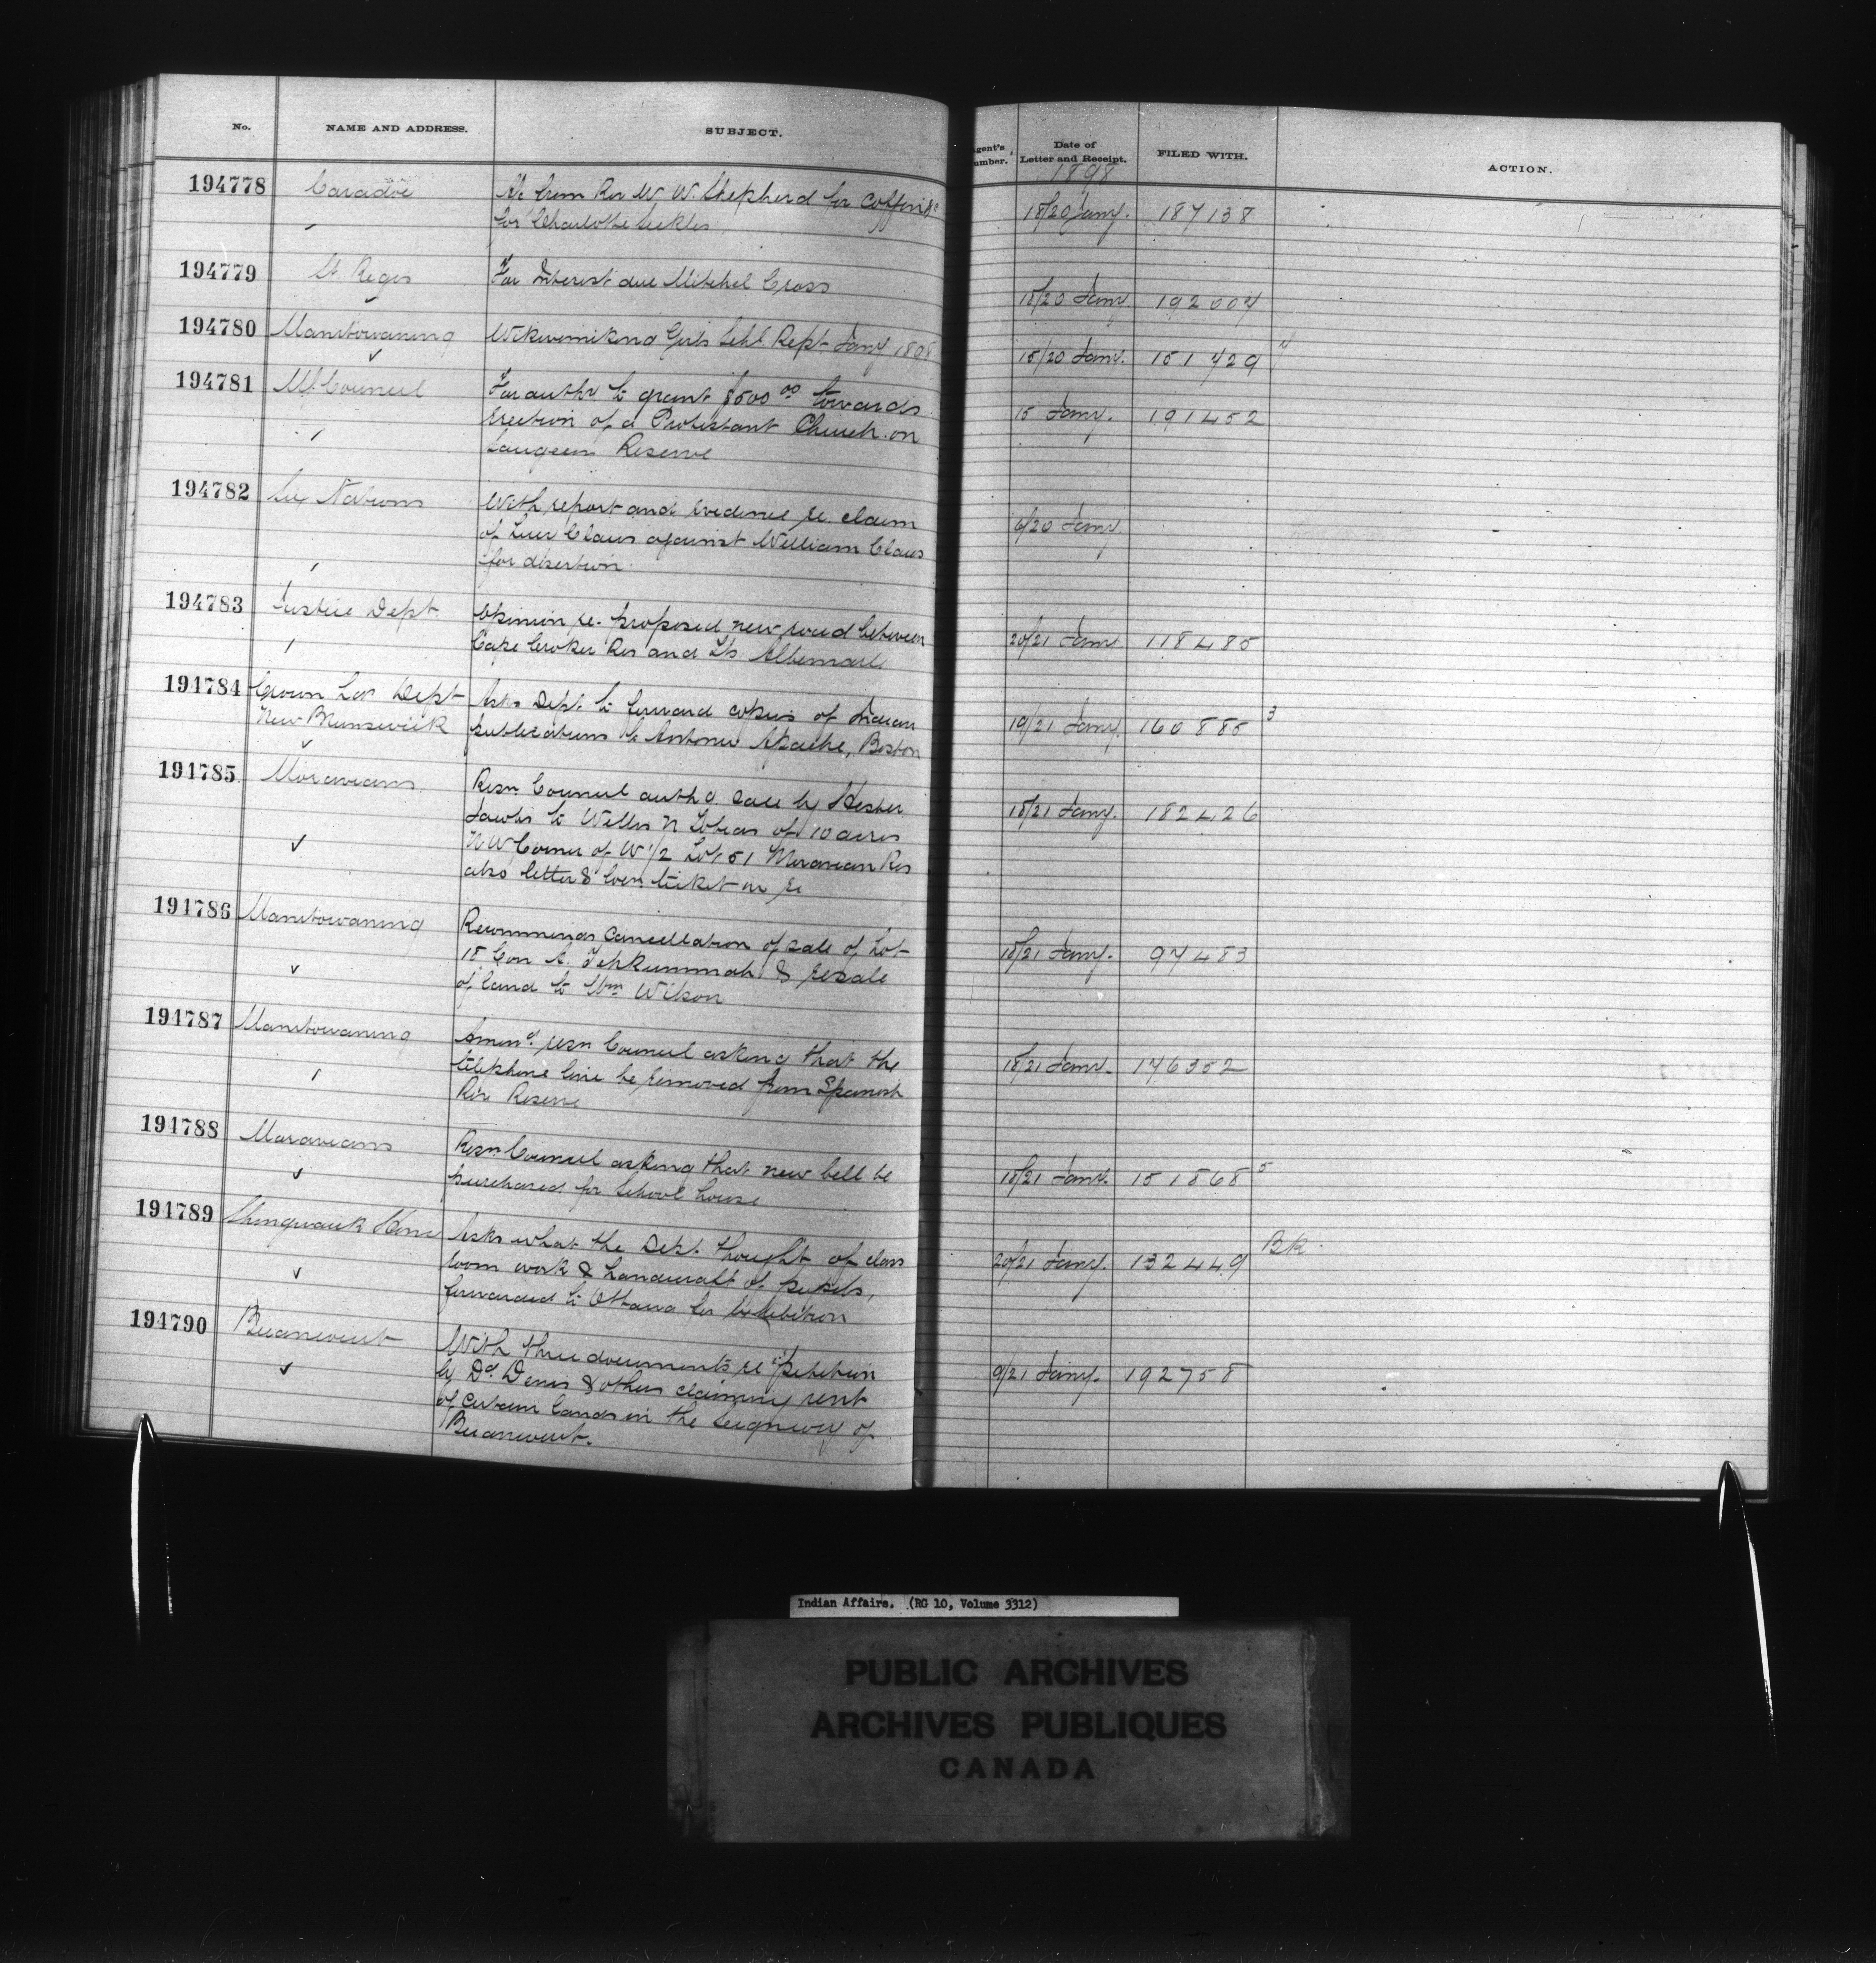 No.
NAME AND ADDRESS.
SUBJECT.
194778
Caradoc
a/c from Rev W. W. Shepherd for coffin &c
for Charlotte
194779
St Regis
For Interest due Mitchel Cross
194780
Manitowaning
Wikwemikong Girls Schl. Rept Jany 1898
194781
Council
For authy. to grant $500 00 towards
erection of a Protestant Church on
Saugeen Reserve
194782
Six Nations
With report and evidence re. claim
of Claus against William Claus
for desertion
194783
Justice Dept
Opinion re. proposed new road between
Cape Croker Res and Albemarle
194784
Crown Dept
New Brunswick
Asks Dept. to forward copies of Indian
publications to Antonio Apache, Boston
194785
Moravians
Resn Council authg. sale by Hester
Jacobs to Willis N Tobias of 10 acres
N W Corner of W 1/2 Lot 51 Moravian Res
also letter & locn ticket re
194786
Manitowaning
Recommends cancellation of sale of Lot
18 Con A. Tehkummah & resale
of land to Wm Wilson
194787
Manitowaning
resn Council asking that the
telephone line be removed from Spanish
Riv Reserve
194788
Moravians
Resn Council asking that new bell be
purchased for School house
194789
Shingwauk Home
Asks what the Dept. thought of class
room work & handicraft of pupils,
forwarded to Ottawa for Exhibition
194790
Becancourt
With three documents re petition
by Dd. Denis & others claiming rent
of certain lands in the Seigniory of
Becancourt.
Agent's
Number.
Date of
Letter and Receipt.
FILED WITH.
ACTION.
1898
18/20 Jany. 187138
18/20 Jany. 192004
18/20 Jany. 151429
15 Jany. 191452
6/20 Jany.
20/21 Jany 118485
19/21 Jany. 160885 3
18/21 Jany. 182426
18/21 Jany. 97483
18/21 Jany. 176352
18/21 Jany. 151868 5
20/21 Jany. 132449 BR
9/21 Jany. 192758
Indian Affairs. (RG 10, Volume 3312)
PUBLIC ARCHIVES
ARCHIVES PUBLIQUES
CANADA